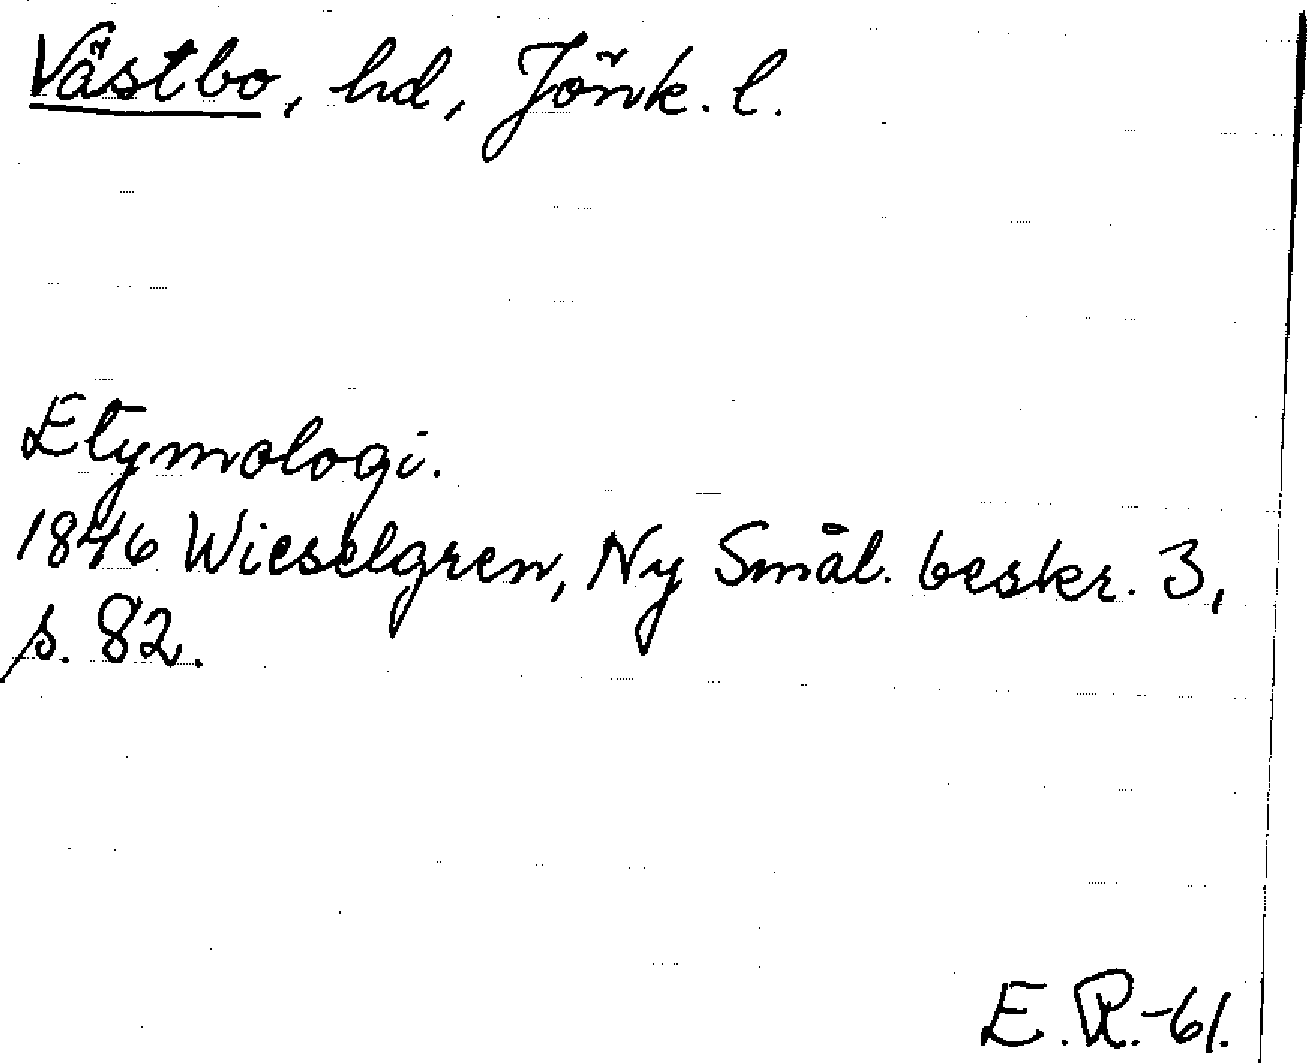 Västbo, hd, Jönk. l.
Etymologi.
1846 Wieselgren, Ny Smål. beskr. 3,
s. 82.
E. R.-61.